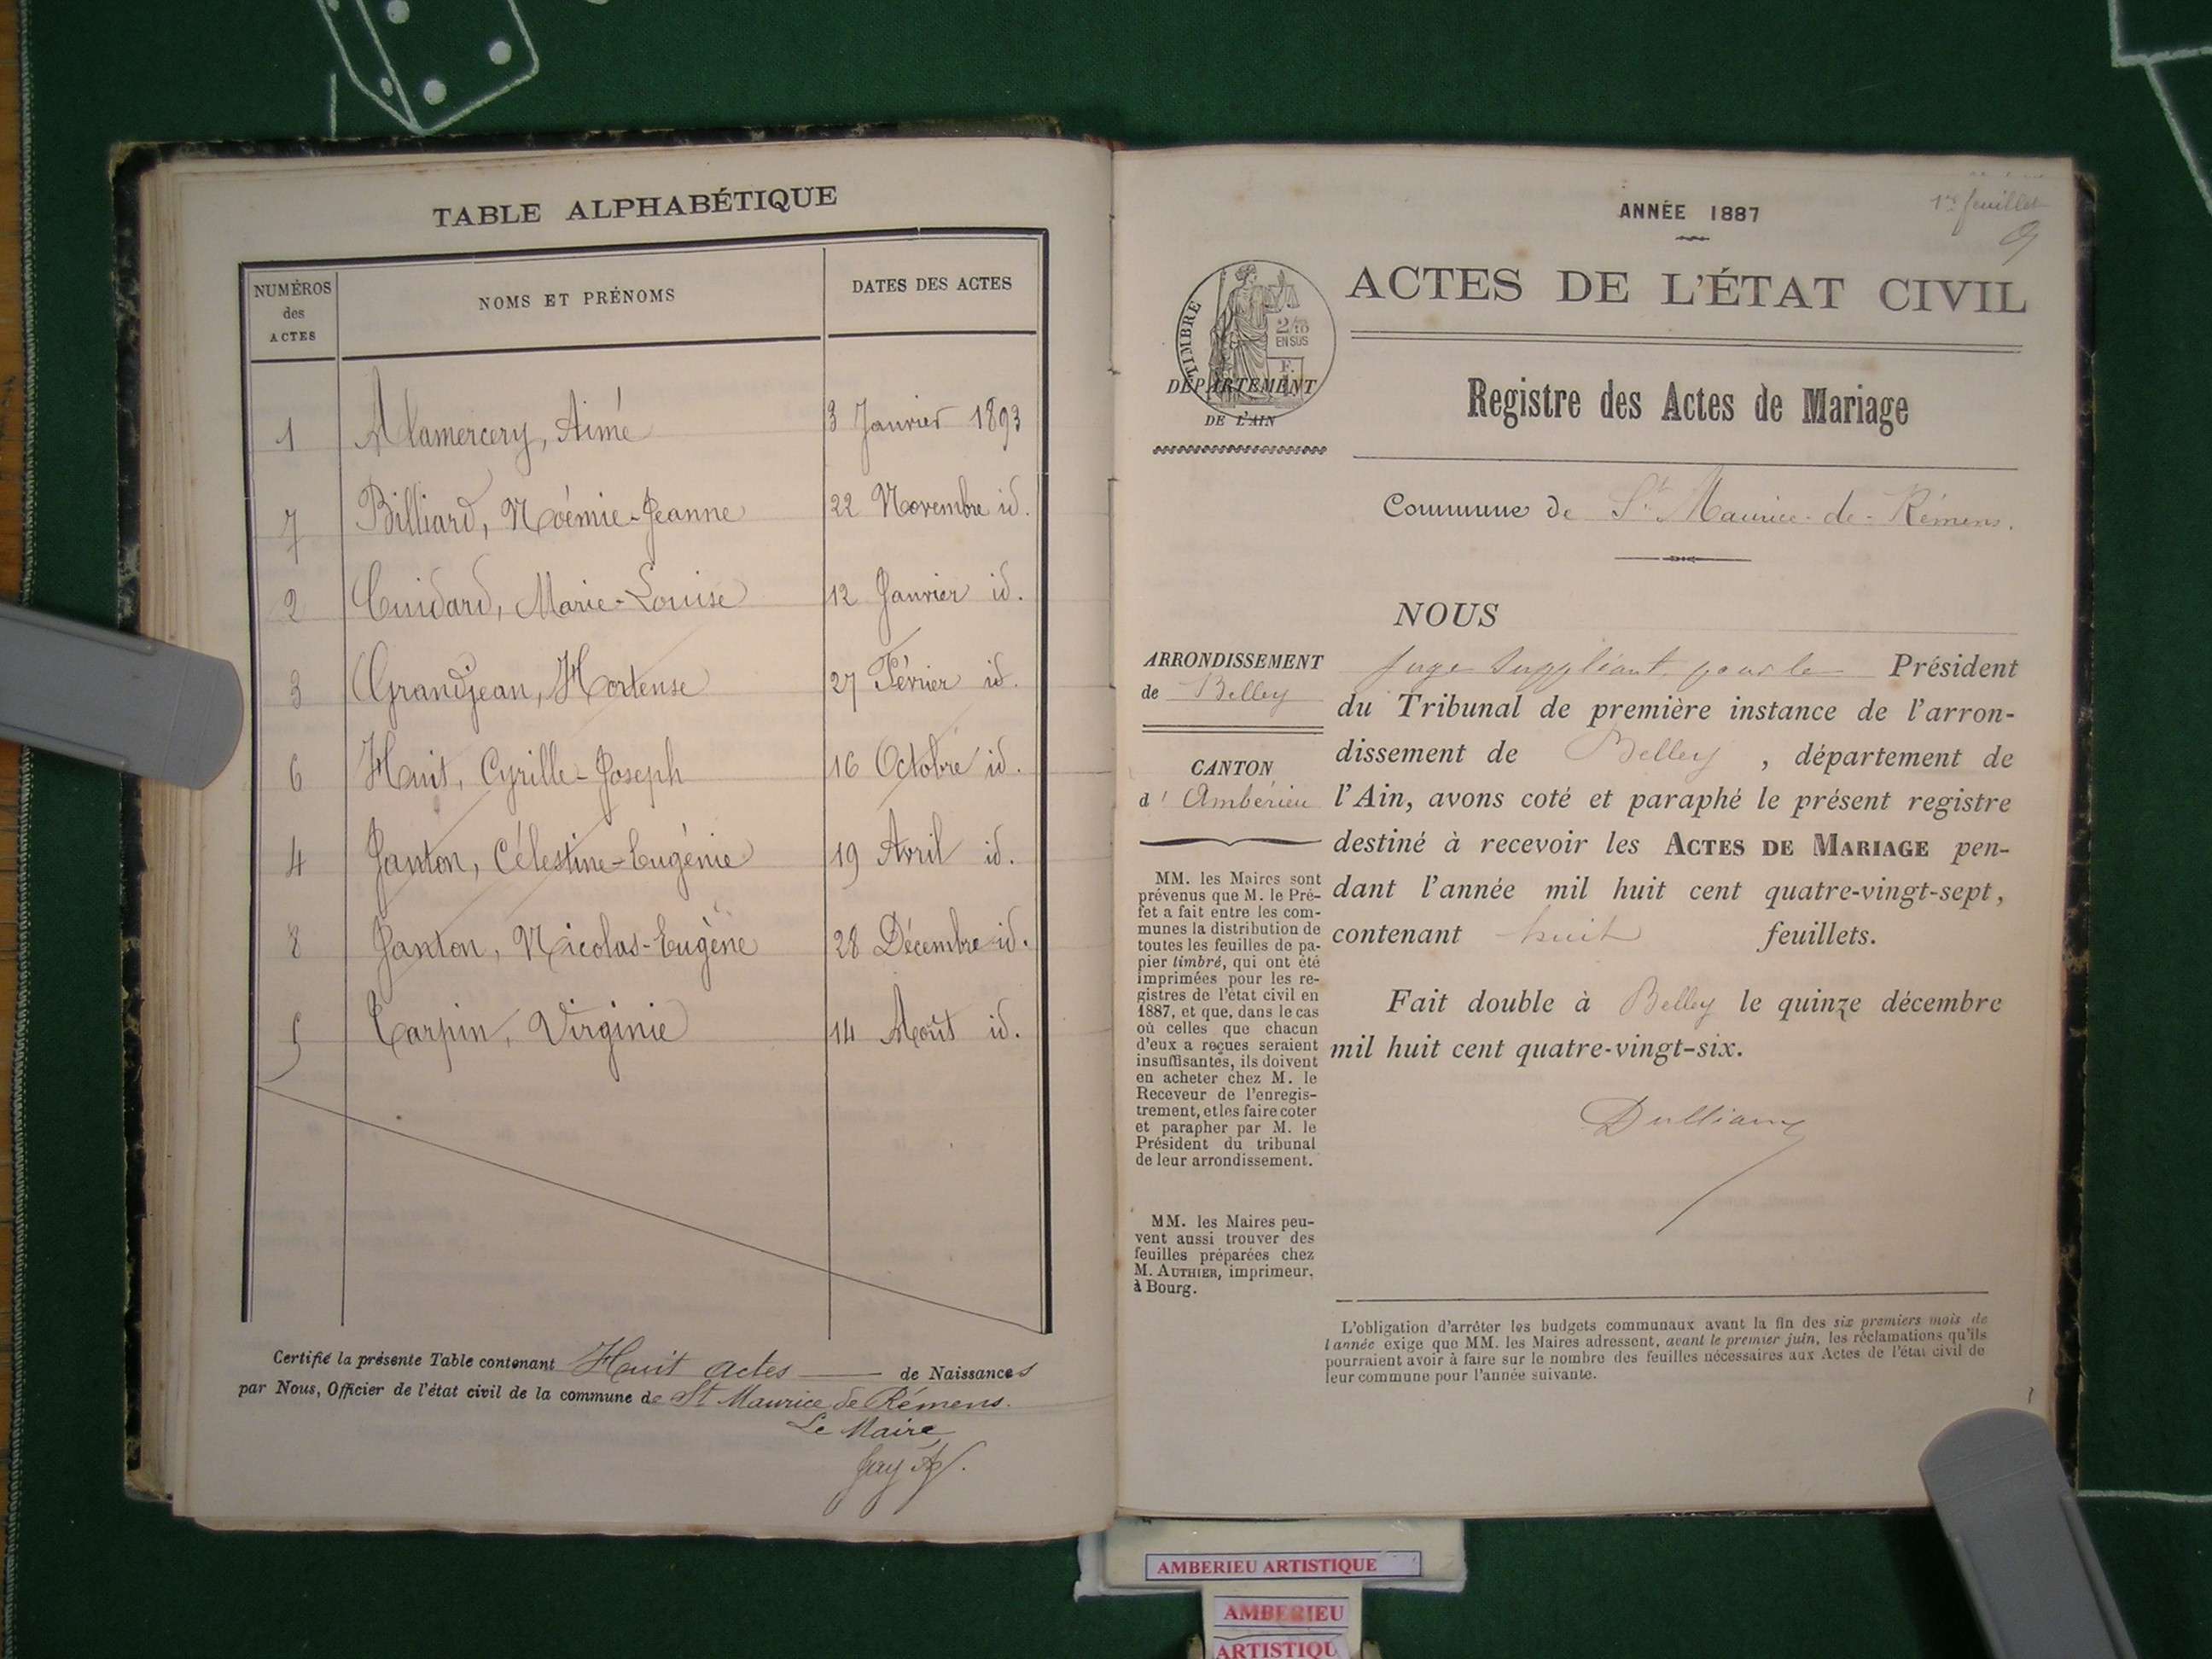 TABLE ALPHABÉTIQUE
NUMÉROS des ACTES NOMS ET PRÉNOMS DATES DES ACTES
1 Alamercery, Aimé 3 Janvier 1893
7 Billiard, Noémie-Jeanne 22 Novembre id.
2 Cuidard, Marie-Louise 12 Janvier id.
3 Grandjean, Hortense 27 Février id.
6 Huit, Cyrille-Joseph 16 Octobre id.
4 Janton, Célestine-Eugénie 19 Avril id.
8 Janton, Nicolas-Eugène 28 Décembre id.
5 Carpin, Virginie 14 Août id.
Certifié la présente Table contenant Huit actes de Naissances
par Nous, Officier de l'état civil de la commune de St Maurice de Rémens.
Le Maire,
Gay
1er feuillet
ANNÉE 1887
ACTES DE L'ÉTAT CIVIL
TIMBRE
2/10
EN SUS
F.
DÉPARTEMENT
DE L'AIN
Registre des Actes de Mariage
Commune de St Maurice-de-Rémens.
ARRONDISSEMENT
de Belley
CANTON
d'Ambérieu
MM. les Maires sont
prévenus que M. le Pré-
fet a fait entre les com-
munes la distribution de
toutes les feuilles de pa-
pier timbré, qui ont été
imprimées pour les re-
gistres de l'état civil en
1887, et que, dans le cas
où celles que chacun
d'eux a reçues seraient
insuffisantes, ils doivent
en acheter chez M. le
Receveur de l'enregis-
trement, et les faire coter
et parapher par M. le
Président du tribunal
de leur arrondissement.
MM. les Maires peu-
vent aussi trouver des
feuilles préparées chez
M. AUTHIER, imprimeur,
à Bourg.
NOUS
Juge Suppléant pour le Président
du Tribunal de première instance de l'arron-
dissement de Belley, département de
l'Ain, avons coté et paraphé le présent registre
destiné à recevoir les ACTES DE MARIAGE pen-
dant l'année mil huit cent quatre-vingt-sept,
contenant huit feuillets.
Fait double à Belley le quinze décembre
mil huit cent quatre-vingt-six.
L'obligation d'arrêter les budgets communaux avant la fin des six premiers mois de
l'année exige que MM. les Maires adressent, avant le premier juin, les réclamations qu'ils
pourraient avoir à faire sur le nombre des feuilles nécessaires aux Actes de l'état civil de
leur commune pour l'année suivante.
AMBERIEU ARTISTIQUE
AMBERIEU
ARTISTIQU